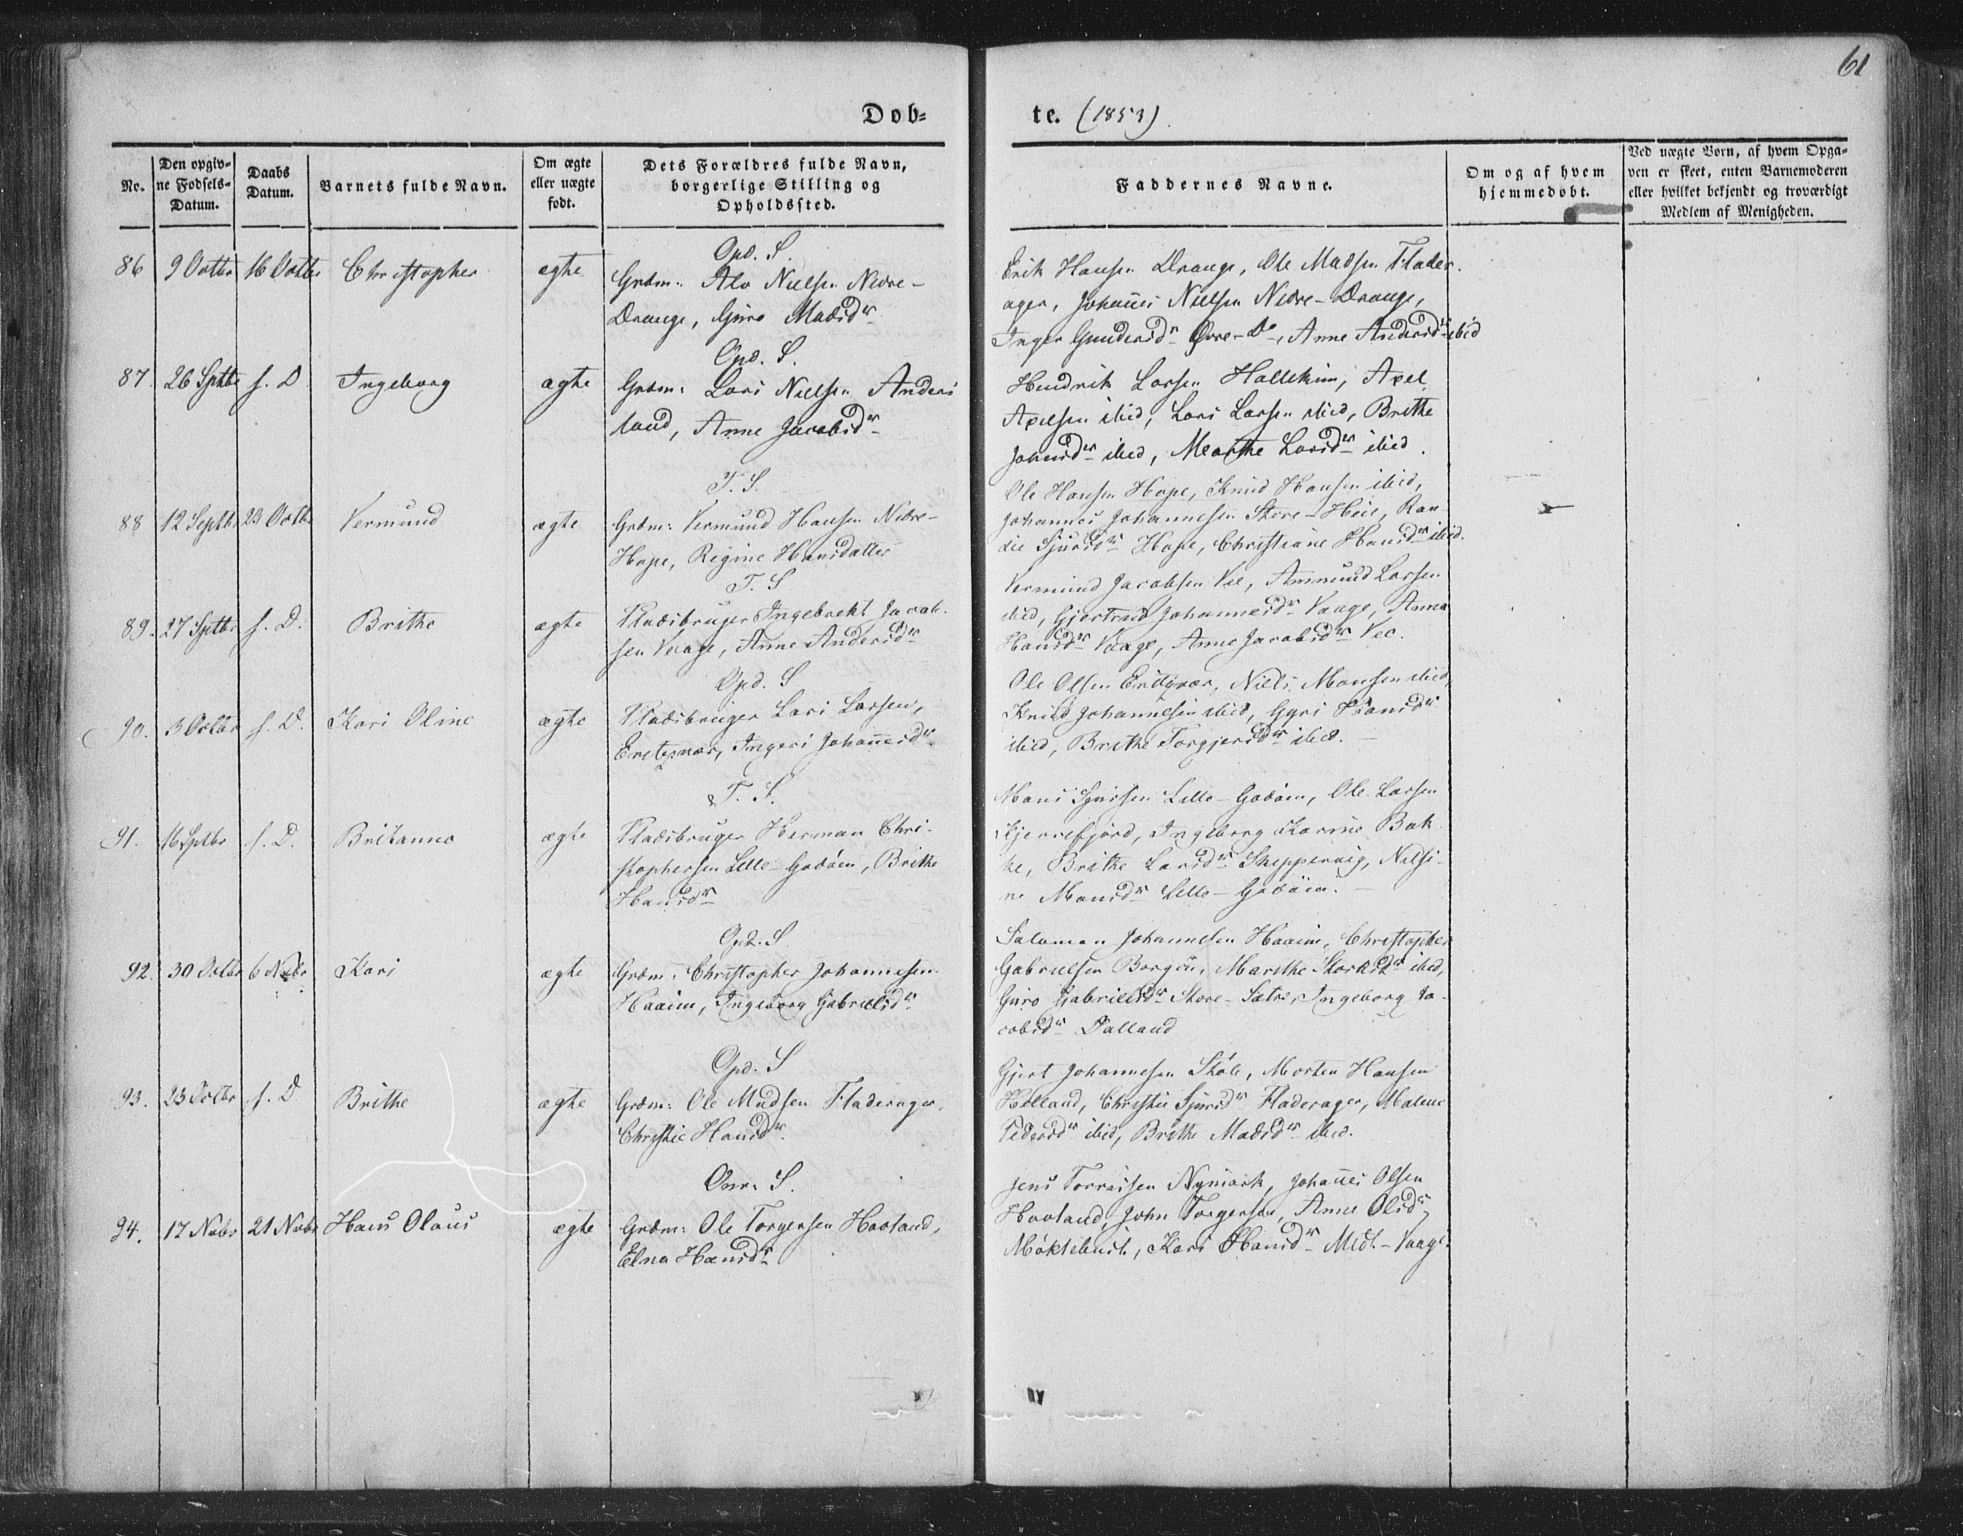 61
Døb-
te. (1853)
No.
Den opgiv-
ne Fødsels-
Datum.
Daabs
Datum.
Barnets fulde Navn.
Om ægte
eller uægte
født.
Dets Forældres fulde Navn,
borgerlige Stilling og
Opholdssted.
Faddernes Navne.
Om og af hvem
hjemmedøbt.
Ved uægte Børn, af hvem Opga-
ven er skeet, enten Barnemoderen
eller hvilket bekjendt og troværdigt
Medlem af Menigheden.
86 9 Octbr 16 Octbr Christopher ægte
Opd. S.
Grdm: Alv Nielsen Nedre-
Drange, Guro Madsdr
Erik Hansen Drange, Ole Madsen Flader-
ager, Johannes Nielsen Nedre-Drange,
Inger Gundersdr Øvre-Do, Anne Andersdr ibid
87. 26 Sptbr s. D. Ingeborg ægte
Opd. S.
Grdm: Lars Nielsen Anders
land, Anne Jacobsdr
Hendrik Larsen Hallekim, Axel
Axelsen ibid, Lars Larsen ibid, Brithe
Johnsdr ibid, Marthe Larsdr ibid.
88 12 Septbr 23 Octbr Vermund ægte
T. S.
Grdm: Vermund Hansen Nedre-
Hope, Regine Hansdatter
Ole Hansen Hope, Knud Hansen ibid,
Johannes Johannesen Store-Heie, Ran-
die Sjursdr Hope, Christiane Hansdr ibid.
89. 27 Sptbr s. D. Brithe ægte
T. S
Pladsbruger Ingebrekt Jacob-
sen Vaage, Anne Andersdr
Vermund Jacobsen Vee, Ammund Larsen
ibid, Gjertrud Johannesdr Vaage, Anna
Hansdr Vaage, Anne Jacobsdr Vee.
90. 3 Octbr s. D. Kari Oline ægte
Opd. S
Pladsbruger Lars Larsen,
Ertesvær, Ingeri Johannesdr
Ole Olsen Ertesvær, Niels Monsen ibid,
Knud Johannesen ibid, Gyri Hansdr
ibid, Brithe Torgjersdr ibid. —
91. 16 Sptbr s. D. Britanna ægte
T. S.
Pladsbruger Herman Chri-
stophersen Lille-Godøen, Brithe
Hansdr
Mons Sjursen Lille-Godøen, Ole Larsen
Kjerrefjord, Ingeborg Karine Bak-
ke, Brithe Larsdr Skeppevig, Nilsi-
ne Monsdr Lille-Godøen. —
92. 30 Octbr 6 Nvbr Kari ægte
Opd. S
Grdm: Christopher Johannesen
Haaim, Ingeborg Gabrielsdr
Salomon Johannesen Haaim, Christopher
Gabrielsen Borgen, Marithe Storksdr ibid,
Guro Gabrielsdr Store-Sætre, Ingeborg Ja-
cobsdr Dalland
93. 23 Octbr s. D Brithe ægte
Opd. S
Grdm: Ole Madsen Fladerager,
Christie Hansdr
Gjert Johannesen Støle, Morten Hansen
Helland, Christie Sjursdr Fladerager, Malene
Pedersdr ibid, Brithe Madsdr ibid.
94. 17 Nvbr 21 Nvbr Hans Olaus ægte
Onr. S.
Grdm: Ole Torgersen Hovland,
Elna Hansdr
Jens Torresen Nymark, Johannes Olsen
Hovland, John Torgersen, Anne Olsdr
Møklebust, Kari Hansdr Midt-Vaage.